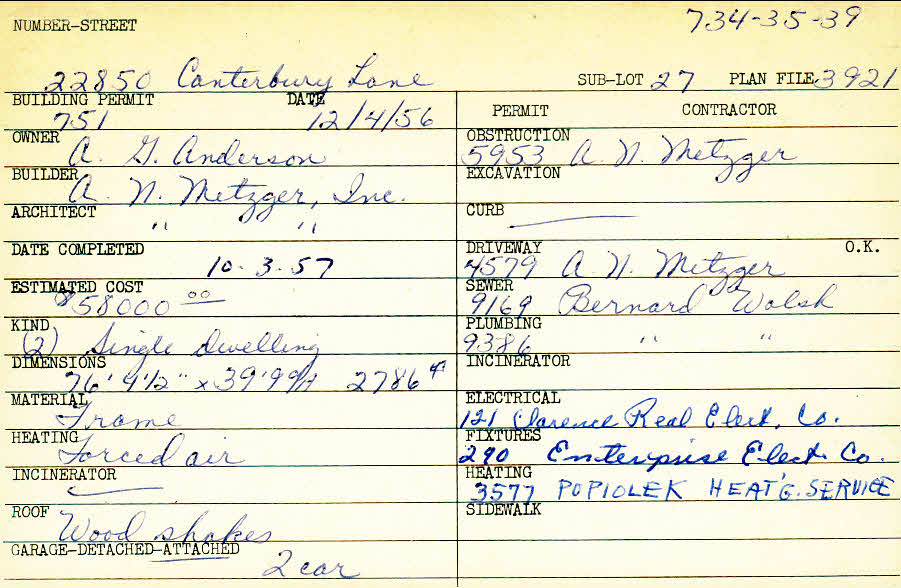 734-35-39
NUMBER-STREET
22850 Canterbury Lane SUB-LOT 27 PLAN FILE 3921
BUILDING PERMIT DATE
751 12/4/56
OWNER
A. G. Anderson
BUILDER
A. N. Metzger, Inc.
ARCHITECT
" "
DATE COMPLETED
10-3-57
ESTIMATED COST
$58000 00
KIND
(2) Single dwelling
DIMENSIONS
76' 9 1/2" x 39' 2786
MATERIAL
Frame
HEATING
Forced air
INCINERATOR
ROOF
Wood shakes
GARAGE-DETACHED-ATTACHED
2 car
PERMIT CONTRACTOR
OBSTRUCTION
5953 A. N. Metzger
EXCAVATION
CURB
DRIVEWAY O.K.
4579 A. N. Metzger
SEWER
9169 Bernard Walsh
PLUMBING
9386 " "
INCINERATOR
ELECTRICAL
121 Clarence Real Elect. Co.
FIXTURES
290 Enterprise Elect. Co.
HEATING
3577 POPIOLEK HEAT'G. SERVICE
SIDEWALK